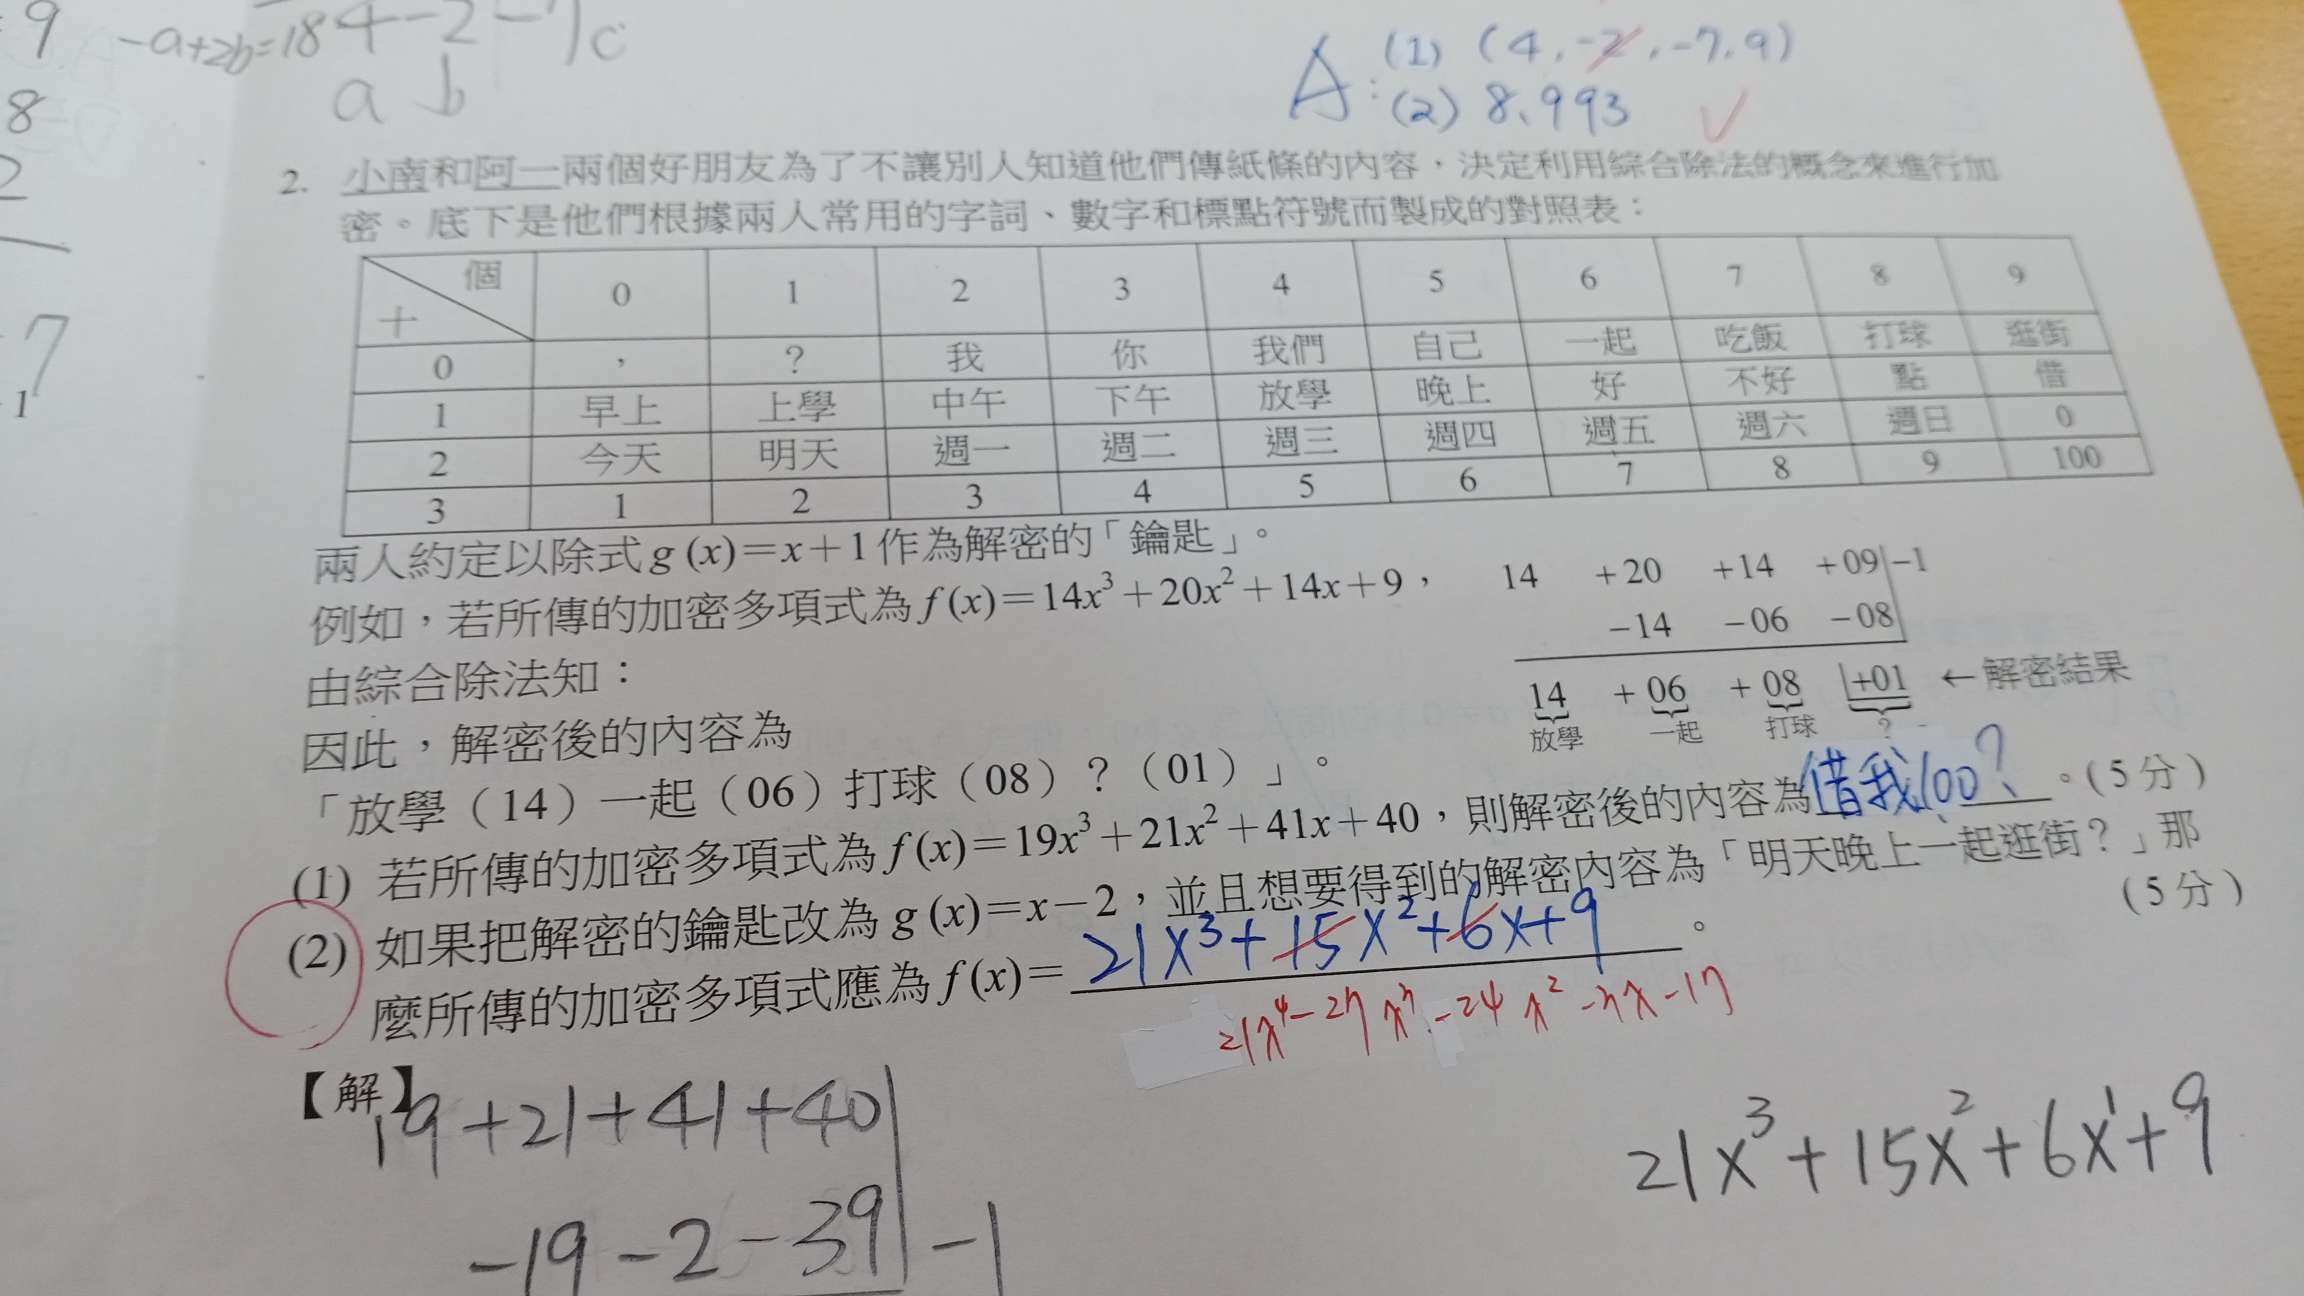 9
-a+2b=18
4-2-7c
a b
8
2
7
1
A: (1) (4,-2,-7,9)
(2) 8.993
2. 小南和阿一兩個好朋友為了不讓別人知道他們傳紙條的內容,決定利用綜合除法的概念來進行加
密。底下是他們根據兩人常用的字詞、數字和標點符號而製成的對照表:
個 0 1 2 3 4 5 6 7 8 9
十
0 , ? 我 你 我們 自己 一起 吃飯 打球 逛街
1 早上 上學 中午 下午 放學 晚上 好 不好 點 借
2 今天 明天 週一 週二 週三 週四 週五 週六 週日 0
3 1 2 3 4 5 6 7 8 9 100
兩人約定以除式 g (x)=x+1 作為解密的「鑰匙」。
例如,若所傳的加密多項式為 f (x)=14x³+20x²+14x+9,
由綜合除法知:
因此,解密後的內容為
「放學(14)一起(06)打球(08)?(01)」。
14 +20 +14 +09 -1
-14 -06 -08
14 +06 +08 +01 ←解密結果
放學 一起 打球 ?
(1) 若所傳的加密多項式為 f (x)=19x³+21x²+41x+40,則解密後的內容為借我100?。(5 分)
(2) 如果把解密的鑰匙改為 g (x)=x-2,並且想要得到的解密內容為「明天晚上一起逛街?」那
(5 分)
麼所傳的加密多項式應為 f (x)=21x³+15x²+6x+9。
21x⁴-27x³-24x²-3x-17
【解】
19+21+41+40
-19-2-39 -1
21x³+15x²+6x¹+9